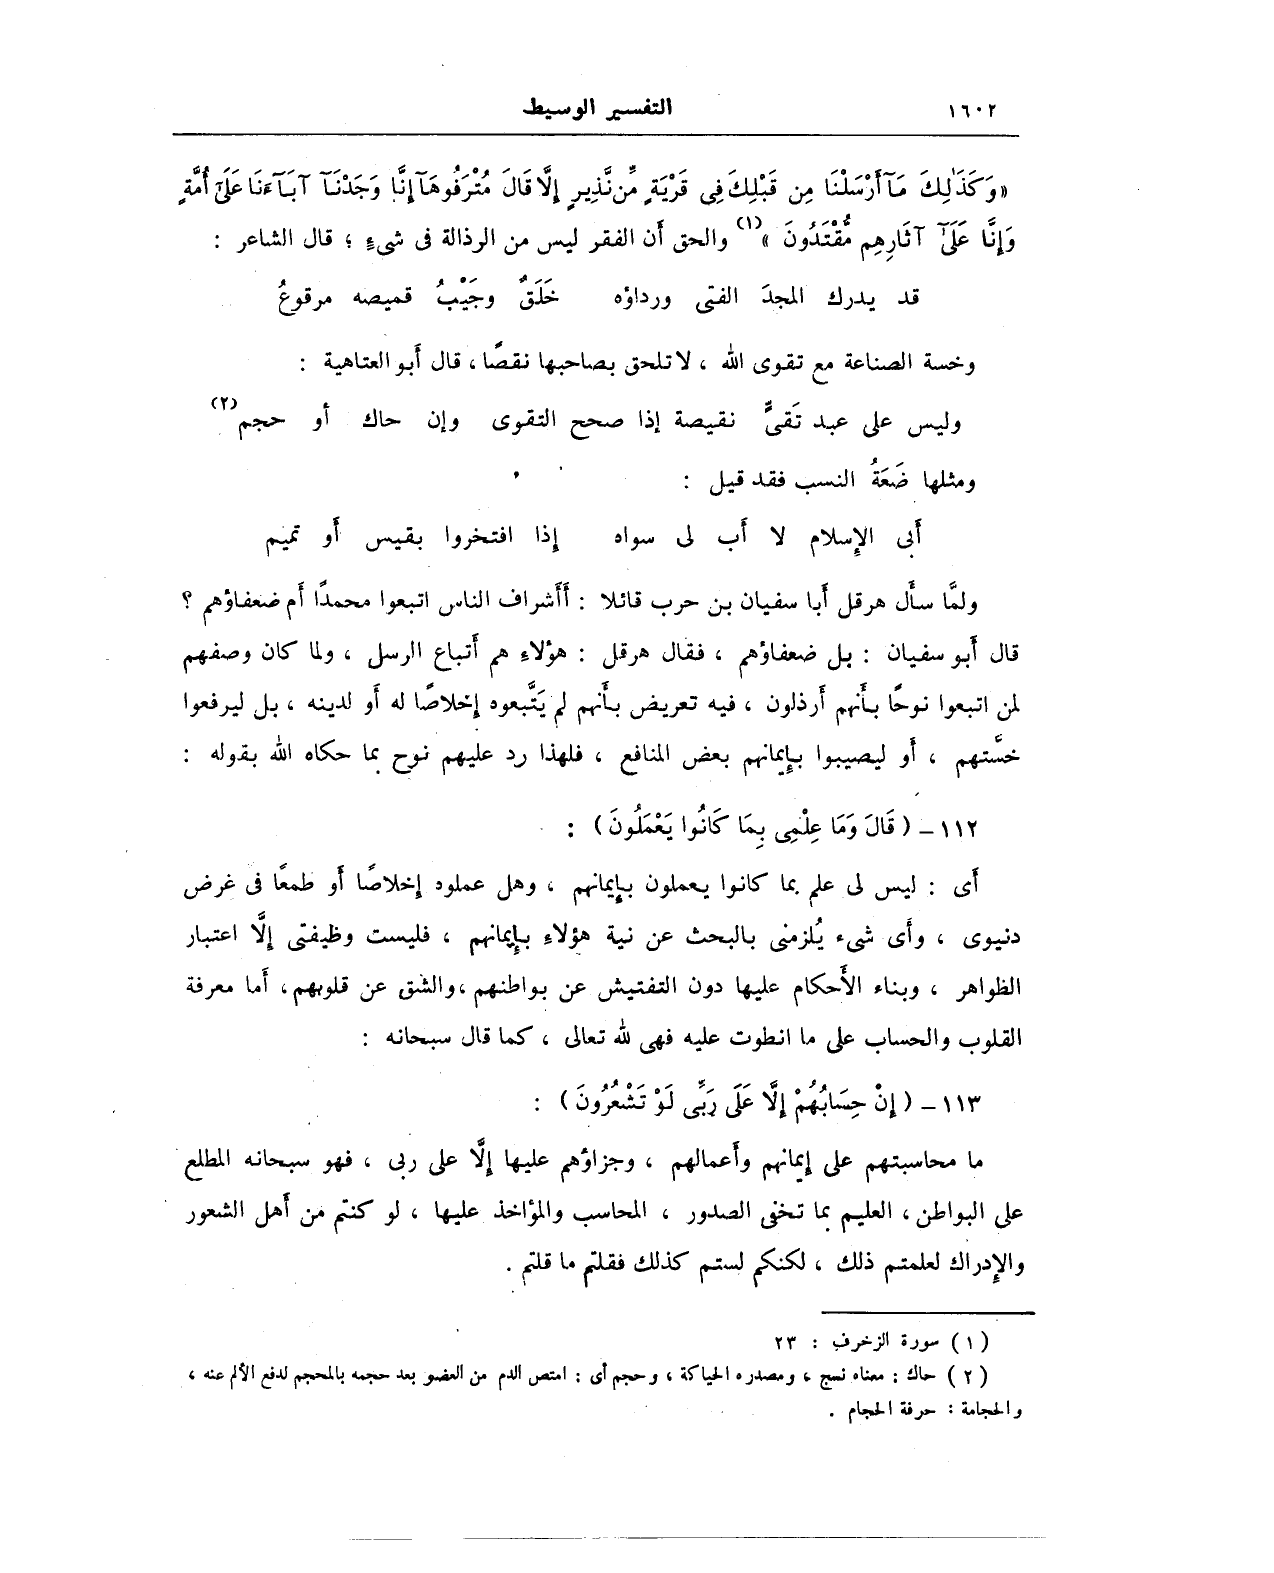 ١٦٠٢ التفسير الوسيط
«وَكَذَٰلِكَ مَآ أَرْسَلْنَا مِن قَبْلِكَ فِى قَرْيَةٍ مِّن نَّذِيرٍ إِلَّا قَالَ مُتْرَفُوهَآ إِنَّا وَجَدْنَآ آبَآءَنَا عَلَىٰٓ أُمَّةٍ
وَإِنَّا عَلَىٰٓ آثَارِهِم مُّقْتَدُونَ »(١) والحق أن الفقر ليس من الرذالة فى شىءٍ ؛ قال الشاعر :
قد يدرك المجدَ الفتى ورداؤه خَلَقٌ وجَيْبُ قميصه مرقوعُ
وخسة الصناعة مع تقوى الله ، لا تلحق بصاحبها نقصًا ، قال أَبو العتاهية :
وليس على عبد تَقىٍّ نقيصة إذا صحح التقوى وإن حاك أو حجم(٢)
ومثلها ضَعَةُ النسب فقد قيل :
أَبى الإسلام لا أَب لى سواه إذا افتخروا بقيس أَو تميم
ولمَّا سأَل هرقل أَبا سفيان بن حرب قائلا : أَأَشراف الناس اتبعوا محمدًا أَم ضعفاؤهم ؟
قال أَبو سفيان : بل ضعفاؤهم ، فقال هرقل : هؤلاءِ هم أَتباع الرسل ، ولما كان وصفهم
لمن اتبعوا نوحًا بأَنهم أَرذلون ، فيه تعريض بأَنهم لم يَتَّبعوه إخلاصًا له أَو لدينه ، بل ليرفعوا
خسَّتهم ، أَو ليصيبوا بإيمانهم بعض المنافع ، فلهذا رد عليهم نوح بما حكاه الله بقوله :
١١٢ – ( قَالَ وَمَا عِلْمِى بِمَا كَانُوا يَعْمَلُونَ ) :
أَى : ليس لى علم بما كانوا يعملون بإيمانهم ، وهل عملوه إخلاصًا أَو طمعًا فى غرض
دنيوى ، وأَى شىء يُلزمنى بالبحث عن نية هؤلاءِ بإيمانهم ، فليست وظيفتى إلَّا اعتبار
الظواهر ، وبناء الأَحكام عليها دون التفتيش عن بواطنهم ، والشق عن قلوبهم ، أَما معرفة
القلوب والحساب على ما انطوت عليه فهى لله تعالى ، كما قال سبحانه :
١١٣ – ( إِنْ حِسَابُهُمْ إِلَّا عَلَى رَبِّى لَوْ تَشْعُرُونَ ) :
ما محاسبتهم على إيمانهم وأَعمالهم ، وجزاؤهم عليها إلَّا على ربى ، فهو سبحانه المطلع
على البواطن ، العليم بما تخفى الصدور ، المحاسب والمؤاخذ عليها ، لو كنتم من أَهل الشعور
والإدراك لعلمتم ذلك ، لكنكم لستم كذلك فقلتم ما قلتم .
( ١ ) سورة الزخرف : ٢٣
( ٢ ) حاك : معناه نسج ، ومصدره الحياكة ، وحجم أى : امتص الدم من العضو بعد حجمه بالمحجم لدفع الألم عنه ،
والحجامة : حرفة الحجام .